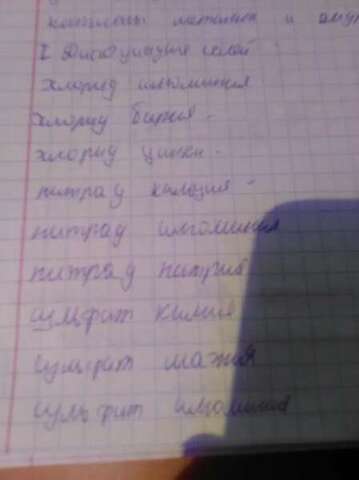 катионы металла и
I Диссоциация солей
хлорид алюминия
хлорид бария -
хлорид цинка -
нитрад кальция -
нитрад алюминия
нитрад натрия
сульфит калия
сульфит магния
сульфит алюминия